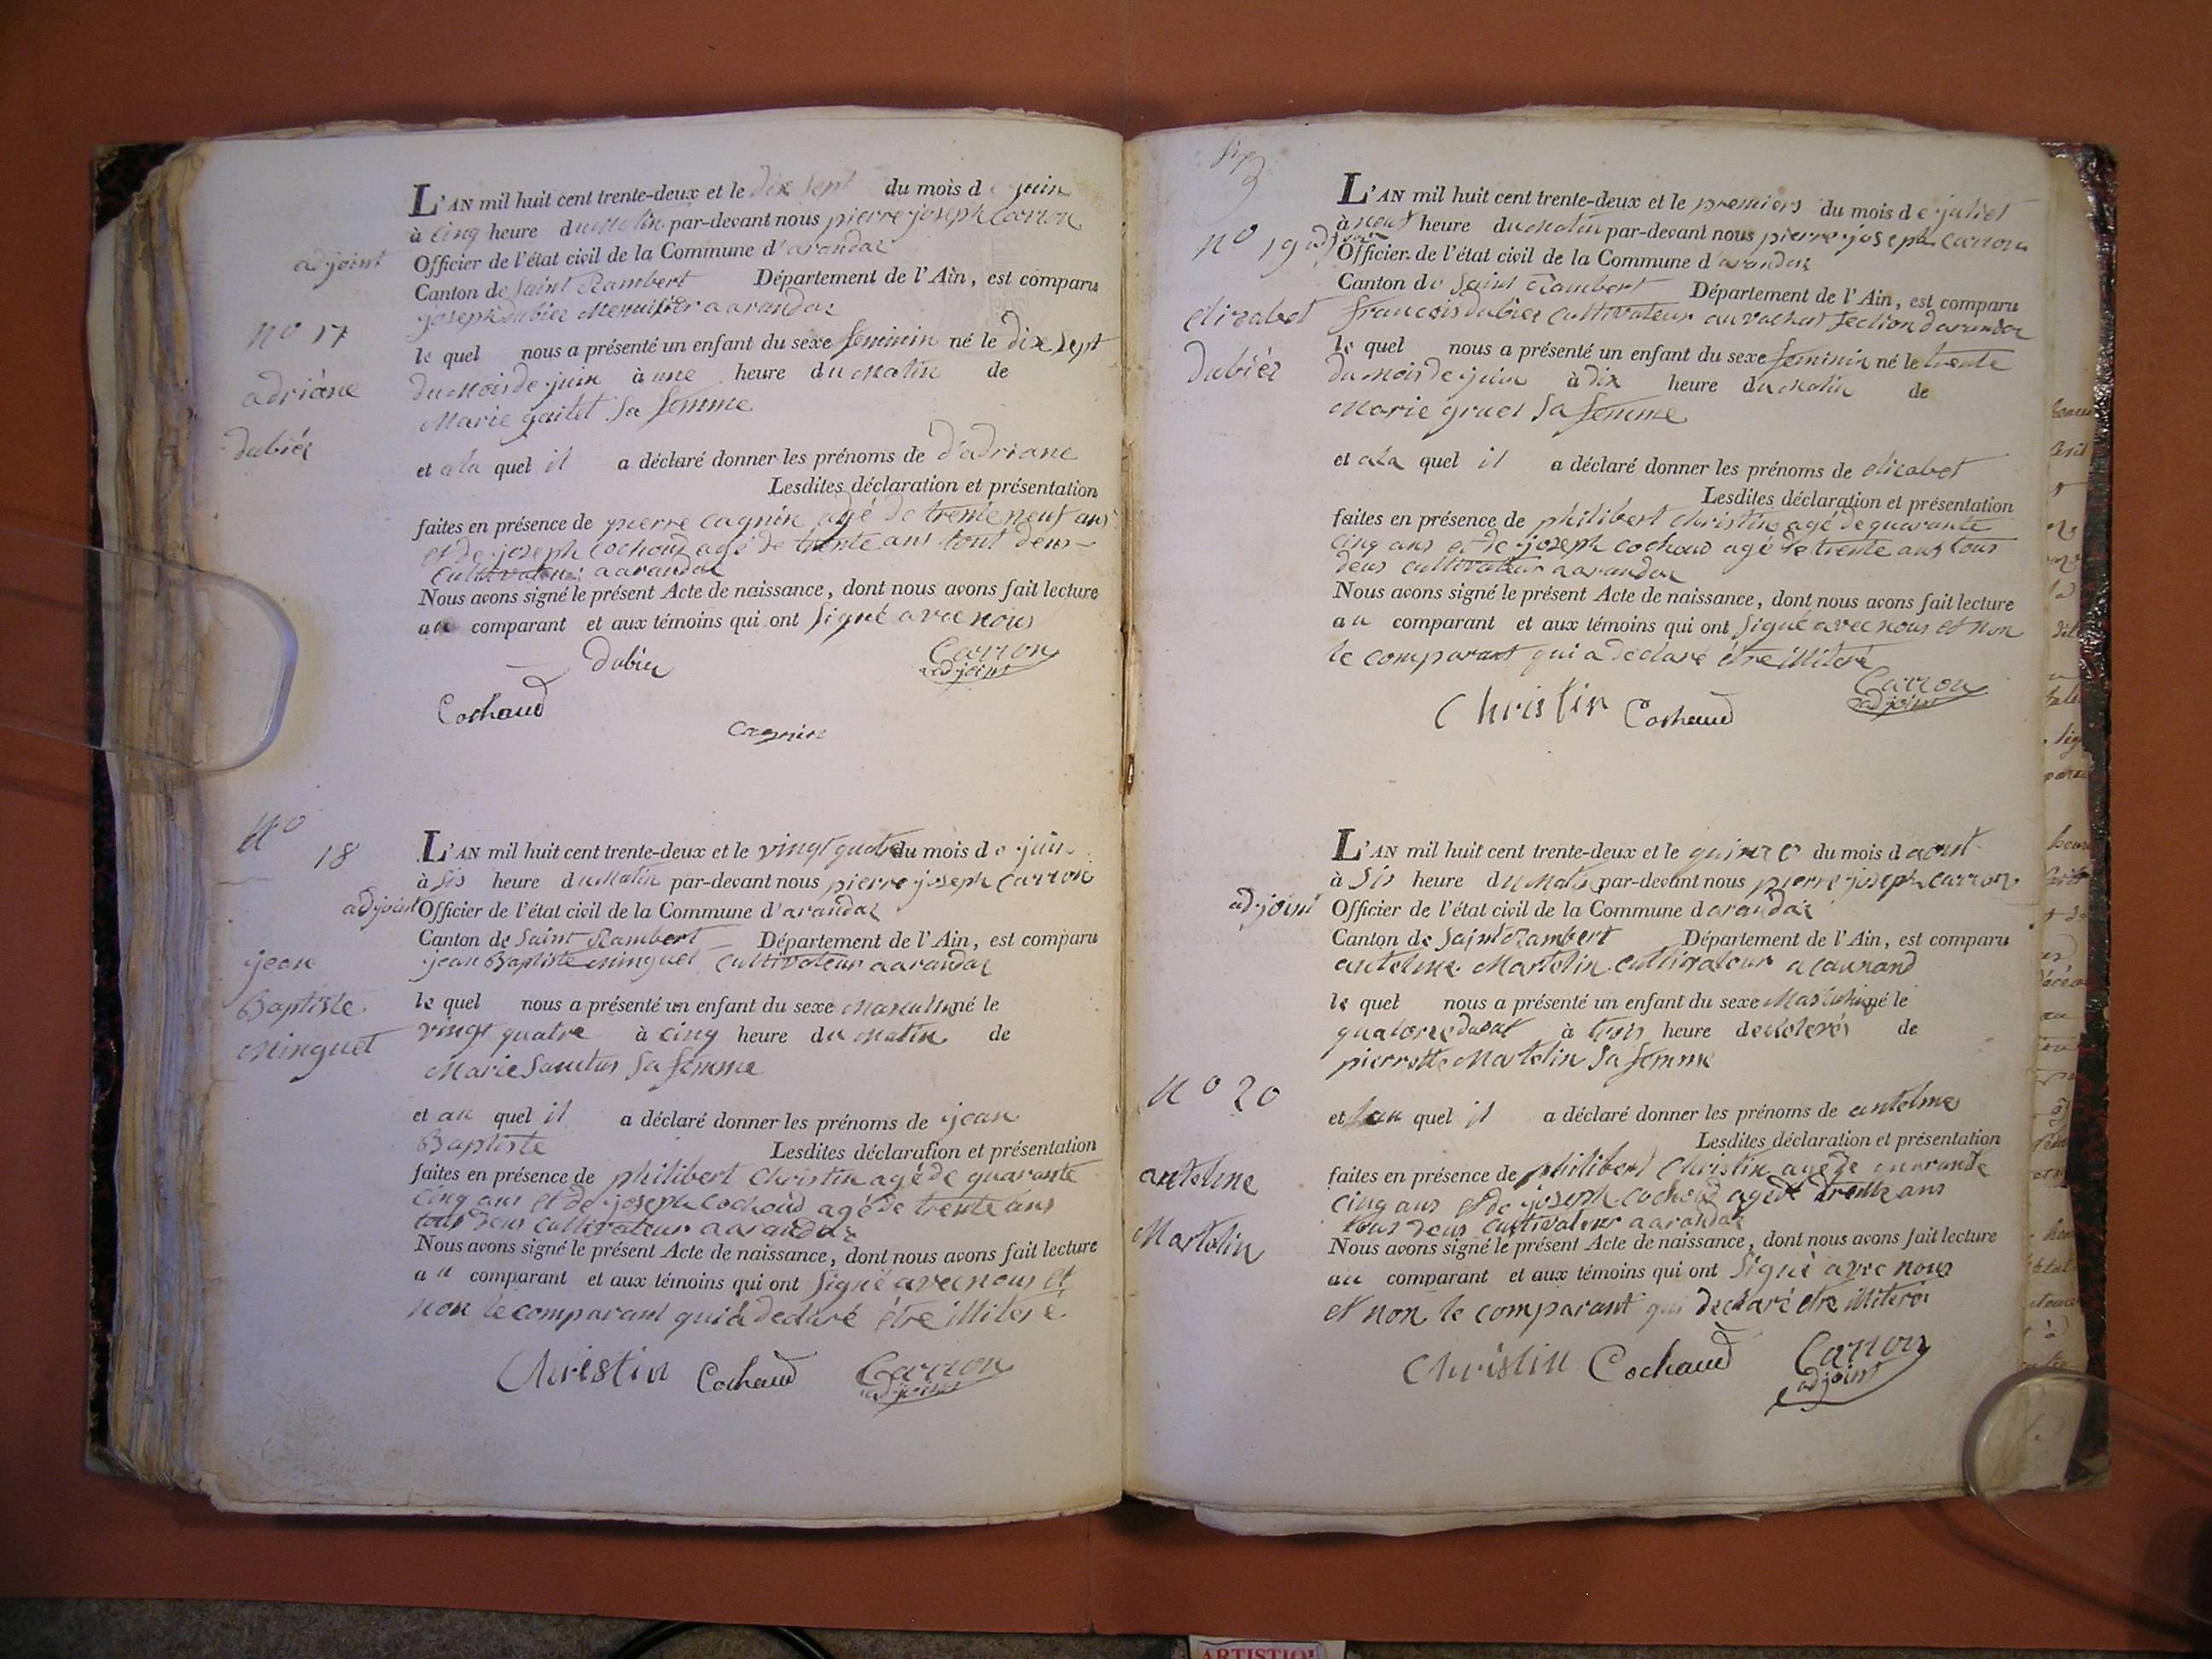 adjoint
nº 17
adriane
dubiéz
L'AN mil huit cent trente-deux et le dix sept du mois de juin
à cinq heure du Matin par-devant nous pierre joseph Carron
Officier de l'état civil de la Commune d'arandaz
Canton de Saint Rambert Département de l'Ain, est comparu
joseph dubiez Menuisier a arandaz
le quel nous a présenté un enfant du sexe feminin né le dix sept
du Mois de juin à une heure du Matin de
Marie gaitet sa femme
et a la quel il a déclaré donner les prénoms de d'adriane
Lesdites déclaration et présentation
faites en présence de pierre cagnin agé de trente neuf ans
et de joseph Cochoud agé de trente ans tout deus
Cultivateur a arandaz
Nous avons signé le présent Acte de naissance, dont nous avons fait lecture
au comparant et aux témoins qui ont Signé avec nous
dubiez
Carron
adjoint
Cochaud
Cagnin
Nº
18
adjoint
jean
Baptiste
Minguet
L'AN mil huit cent trente-deux et le vingt quatre du mois de juin
à Sis heure du Matin par-devant nous pierre joseph Carron
Officier de l'état civil de la Commune d'arandaz
Canton de Saint Rambert Département de l'Ain, est comparu
jean Baptiste minguet Cultivateur a arandaz
le quel nous a présenté un enfant du sexe Masculin né le
vingt quatre à cinq heure du Matin de
Marie Sa femme
et au quel il a déclaré donner les prénoms de jean
Baptiste Lesdites déclaration et présentation
faites en présence de philibert Christin agé de quarante
cinq ans et de joseph Cochoud agé de trente ans
tous deus cultivateur a arandaz
Nous avons signé le présent Acte de naissance, dont nous avons fait lecture
au comparant et aux témoins qui ont Signé avec nous et
non le comparant qui a declaré être illiteré
Christin Cochaud Carron
adjoint
nº 19 adjoint
elizabet
dubiéz
L'AN mil huit cent trente-deux et le premiers du mois de juliet
à neuf heure du Matin par-devant nous pierre joseph Carron
Officier de l'état civil de la Commune d'arandaz
Canton de Saint Rambert Département de l'Ain, est comparu
francois dubiez Cultivateur au vachat Section d'arandaz
le quel nous a présenté un enfant du sexe feminin né le trente
du Mois de juin à dix heure du Matin de
Marie gruel Sa femme
et a la quel il a déclaré donner les prénoms de elizabet
Lesdites déclaration et présentation
faites en présence de philibert Christin agé de quarante
cinq ans et de joseph cochoud agé de trente ans tous
deus cultivateur a arandaz
Nous avons signé le présent Acte de naissance, dont nous avons fait lecture
au comparant et aux témoins qui ont Signé avec nous et non
le comparant qui a declaré être illiteré
Christin Cochaud Carron
adjoint
adjoint
nº 20
antelme
Martelin
L'AN mil huit cent trente-deux et le quinze du mois d aout
à Sis heure du Matin par-devant nous pierre joseph Carron
Officier de l'état civil de la Commune d arandaz
Canton de Saint Rambert Département de l'Ain, est comparu
antelme Martelin cultivateur a
le quel nous a présenté un enfant du sexe Masculin né le
quatorze à trois heure de
pierrette Martelin Sa femme
et au quel il a déclaré donner les prénoms de antelme
Lesdites déclaration et présentation
faites en présence de philibert Christin agé de quarante
cinq ans et de joseph Cochoud agé de trente ans
tous deus cultivateur a arandaz
Nous avons signé le présent Acte de naissance, dont nous avons fait lecture
au comparant et aux témoins qui ont Signé avec nous
et non le comparant qui declaré etre illiteré
Christin Cochaud Carron
adjoint